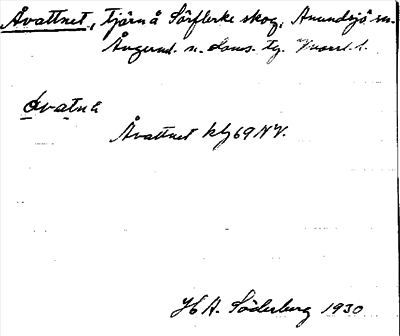 Åvattnet, tjärn å Sörflerke skog, Anundsjö sn.
Ångerml. n. Doms. tg.
åvatnə
Åvattnet kbl 69 NV.
H A. Söderberg 1930